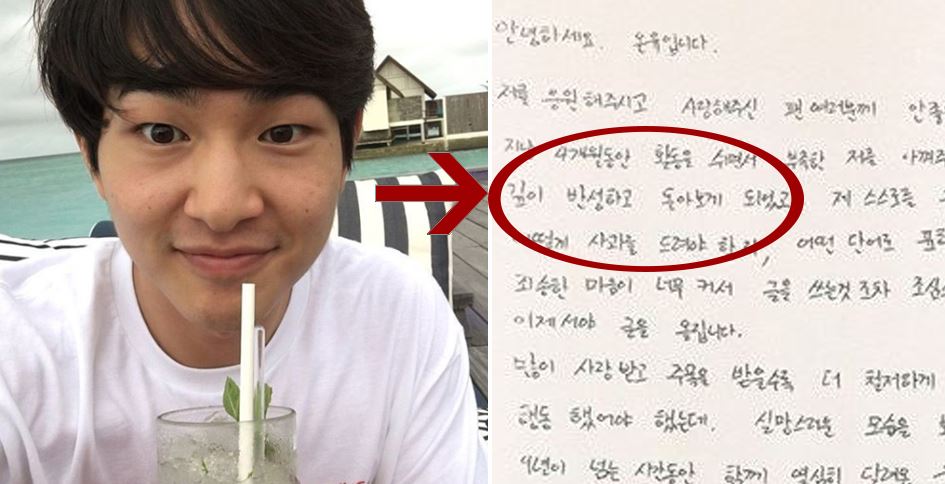 안녕하세요. 온유입니다.
저를 응원해주시고 사랑해주신 팬 여러분께
지난 4개월동안 활동을 쉬면서 부족한 저를 아껴주
깊이 반성하고 돌아보게 되었고 제 스스로를
어떻게 사과를 드려야 할지, 어떤 단어로
죄송한 마음이 너무 커서 글을 쓰는것 조차 조심
이제서야 글을 옮깁니다.
많이 사랑 받고 주목을 받을수록 더 철저하게
행동 했어야 했는데. 실망스러운 모습을
9년이 넘는 시간동안 함께 열심히 달려온